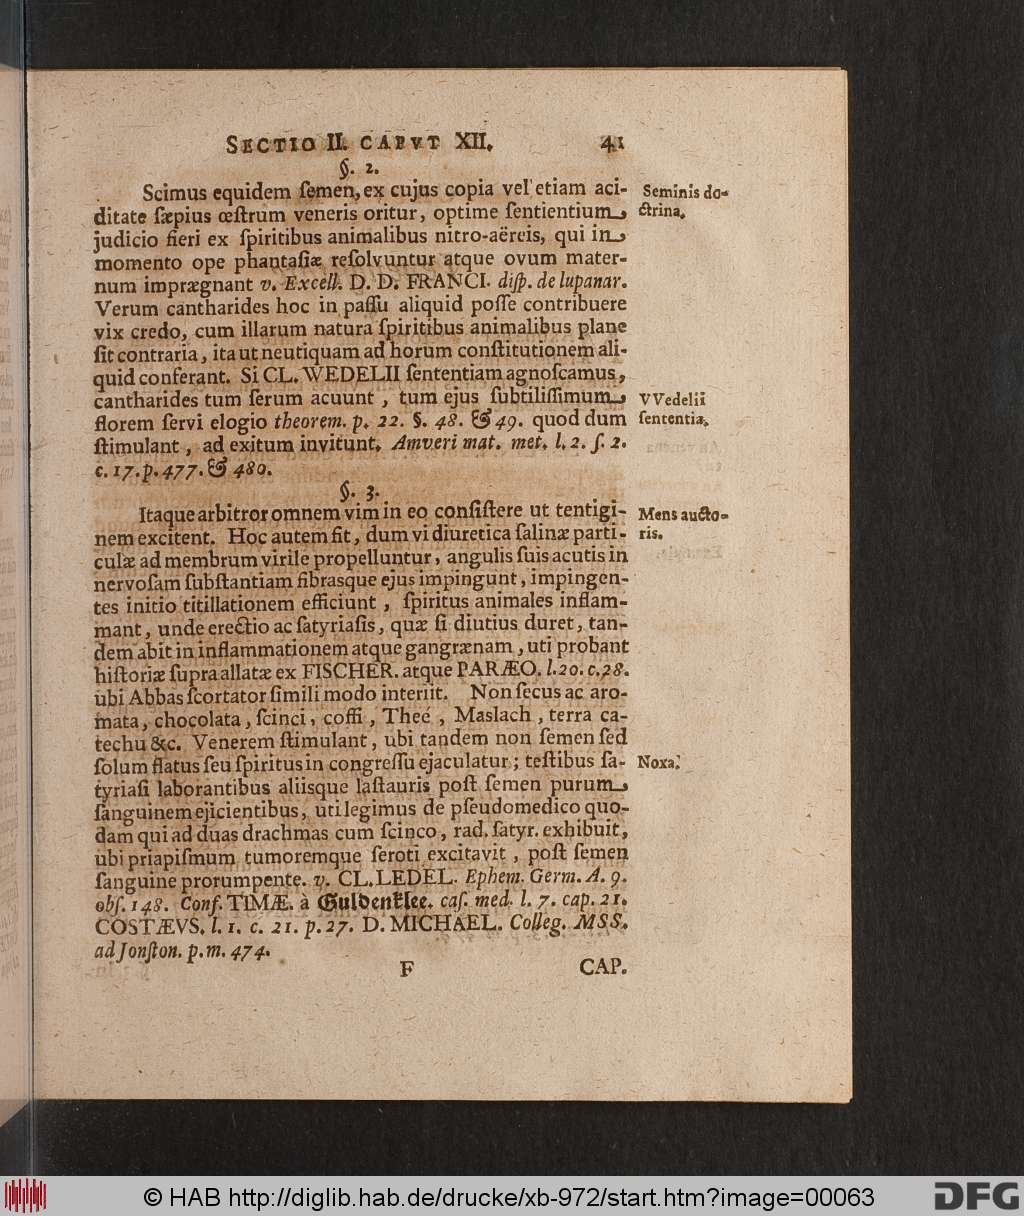 SECTIO II. CAPVT XII. 41
§. 2.
Scimus equidem ſemen, ex cujus copia vel etiam aci- Seminis do-
ditate ſæpius œſtrum veneris oritur, optime ſentientium ctrina.
judicio fieri ex ſpiritibus animalibus nitro-aëreis, qui in
momento ope phantaſiæ reſolvuntur atque ovum mater-
num imprægnant v. Excell. D. D. FRANCI. diſp. de lupanar.
Verum cantharides hoc in paſſu aliquid poſſe contribuere
vix credo, cum illarum natura ſpiritibus animalibus plane
ſit contraria, ita ut neutiquam ad horum conſtitutionem ali-
quid conferant. Si CL. WEDELII ſententiam agnoſcamus,
cantharides tum ſerum acuunt, tum ejus ſubtiliſſimum VVedelii
florem ſervi elogio theorem. p. 22. §. 48. & 49. quod dum ſententia.
ſtimulant, ad exitum invitunt. Amveri mat. met. l. 2. ſ. 2.
c. 17. p. 477. & 480.
§. 3.
Itaque arbitror omnem vim in eo conſiſtere ut tentigi- Mens aucto-
nem excitent. Hoc autem fit, dum vi diuretica ſalinæ parti- ris.
culæ ad membrum virile propelluntur, angulis ſuis acutis in
nervoſam ſubſtantiam fibrasque ejus impingunt, impingen-
tes initio titillationem efficiunt, ſpiritus animales inflam-
mant, unde erectio ac ſatyriaſis, quæ ſi diutius duret, tan-
dem abit in inflammationem atque gangrænam, uti probant
hiſtoriæ ſupra allatæ ex FISCHER. atque PARÆO. l. 20. c. 28.
ubi Abbas ſcortator ſimili modo interiit. Non ſecus ac aro-
mata, chocolata, ſcinci, coffi, Theé, Maslach, terra ca-
techu &c. Venerem ſtimulant, ubi tandem non ſemen ſed
ſolum flatus ſeu ſpiritus in congreſſu ejaculatur; teſtibus ſa- Noxa.
tyriaſi laborantibus aliisque laſtauris poſt ſemen purum
ſanguinem ejicientibus, uti legimus de pſeudomedico quo-
dam qui ad duas drachmas cum ſcinco, rad. ſatyr. exhibuit,
ubi priapiſmum tumoremque ſeroti excitavit, poſt ſemen
ſanguine prorumpente. v. CL. LEDEL. Ephem. Germ. A. 9.
obſ. 148. Conf. TIMÆ. à Guldenklee. caſ. med. l. 7. cap. 21.
COSTÆVS. l. 1. c. 21. p. 27. D. MICHAEL. Colleg. MSS.
ad Jonſton. p. m. 474.
F CAP.
© HAB http://diglib.hab.de/drucke/xb-972/start.htm?image=00063 DFG